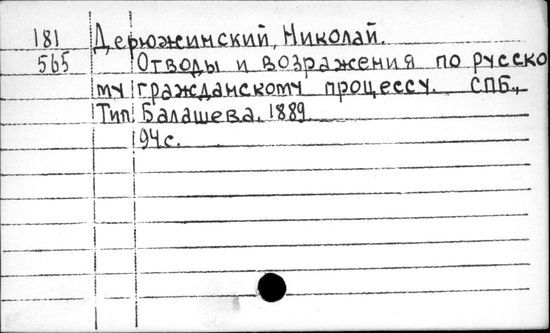 181 Дерюжинский, Николай.
565 Отводы и возражения по русско
му гражданскому процессу. СПБ.,
Тип. Балашева. 1889
94с.